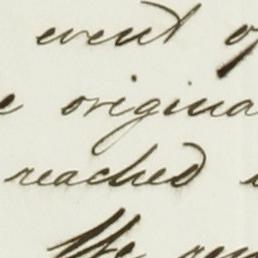 event of
origina
reached
We